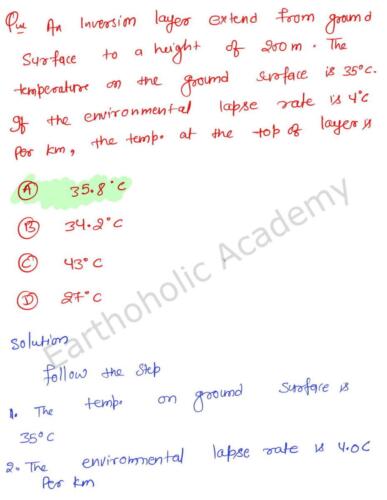 Que An Inversion layer extend from ground
Surface to a height of 200 m. The
temperature on the ground surface is 35°C.
If the environmental lapse rate is 4°C
Per km, the temp. at the top of layer is
A 35.8°C
B 34.2°C
C 43°C
D 27°C
Solution
follow the step
1. The temp. on ground surface is
35°C
2. The environmental lapse rate is 4.0C
Per km
Earthoholic Academy